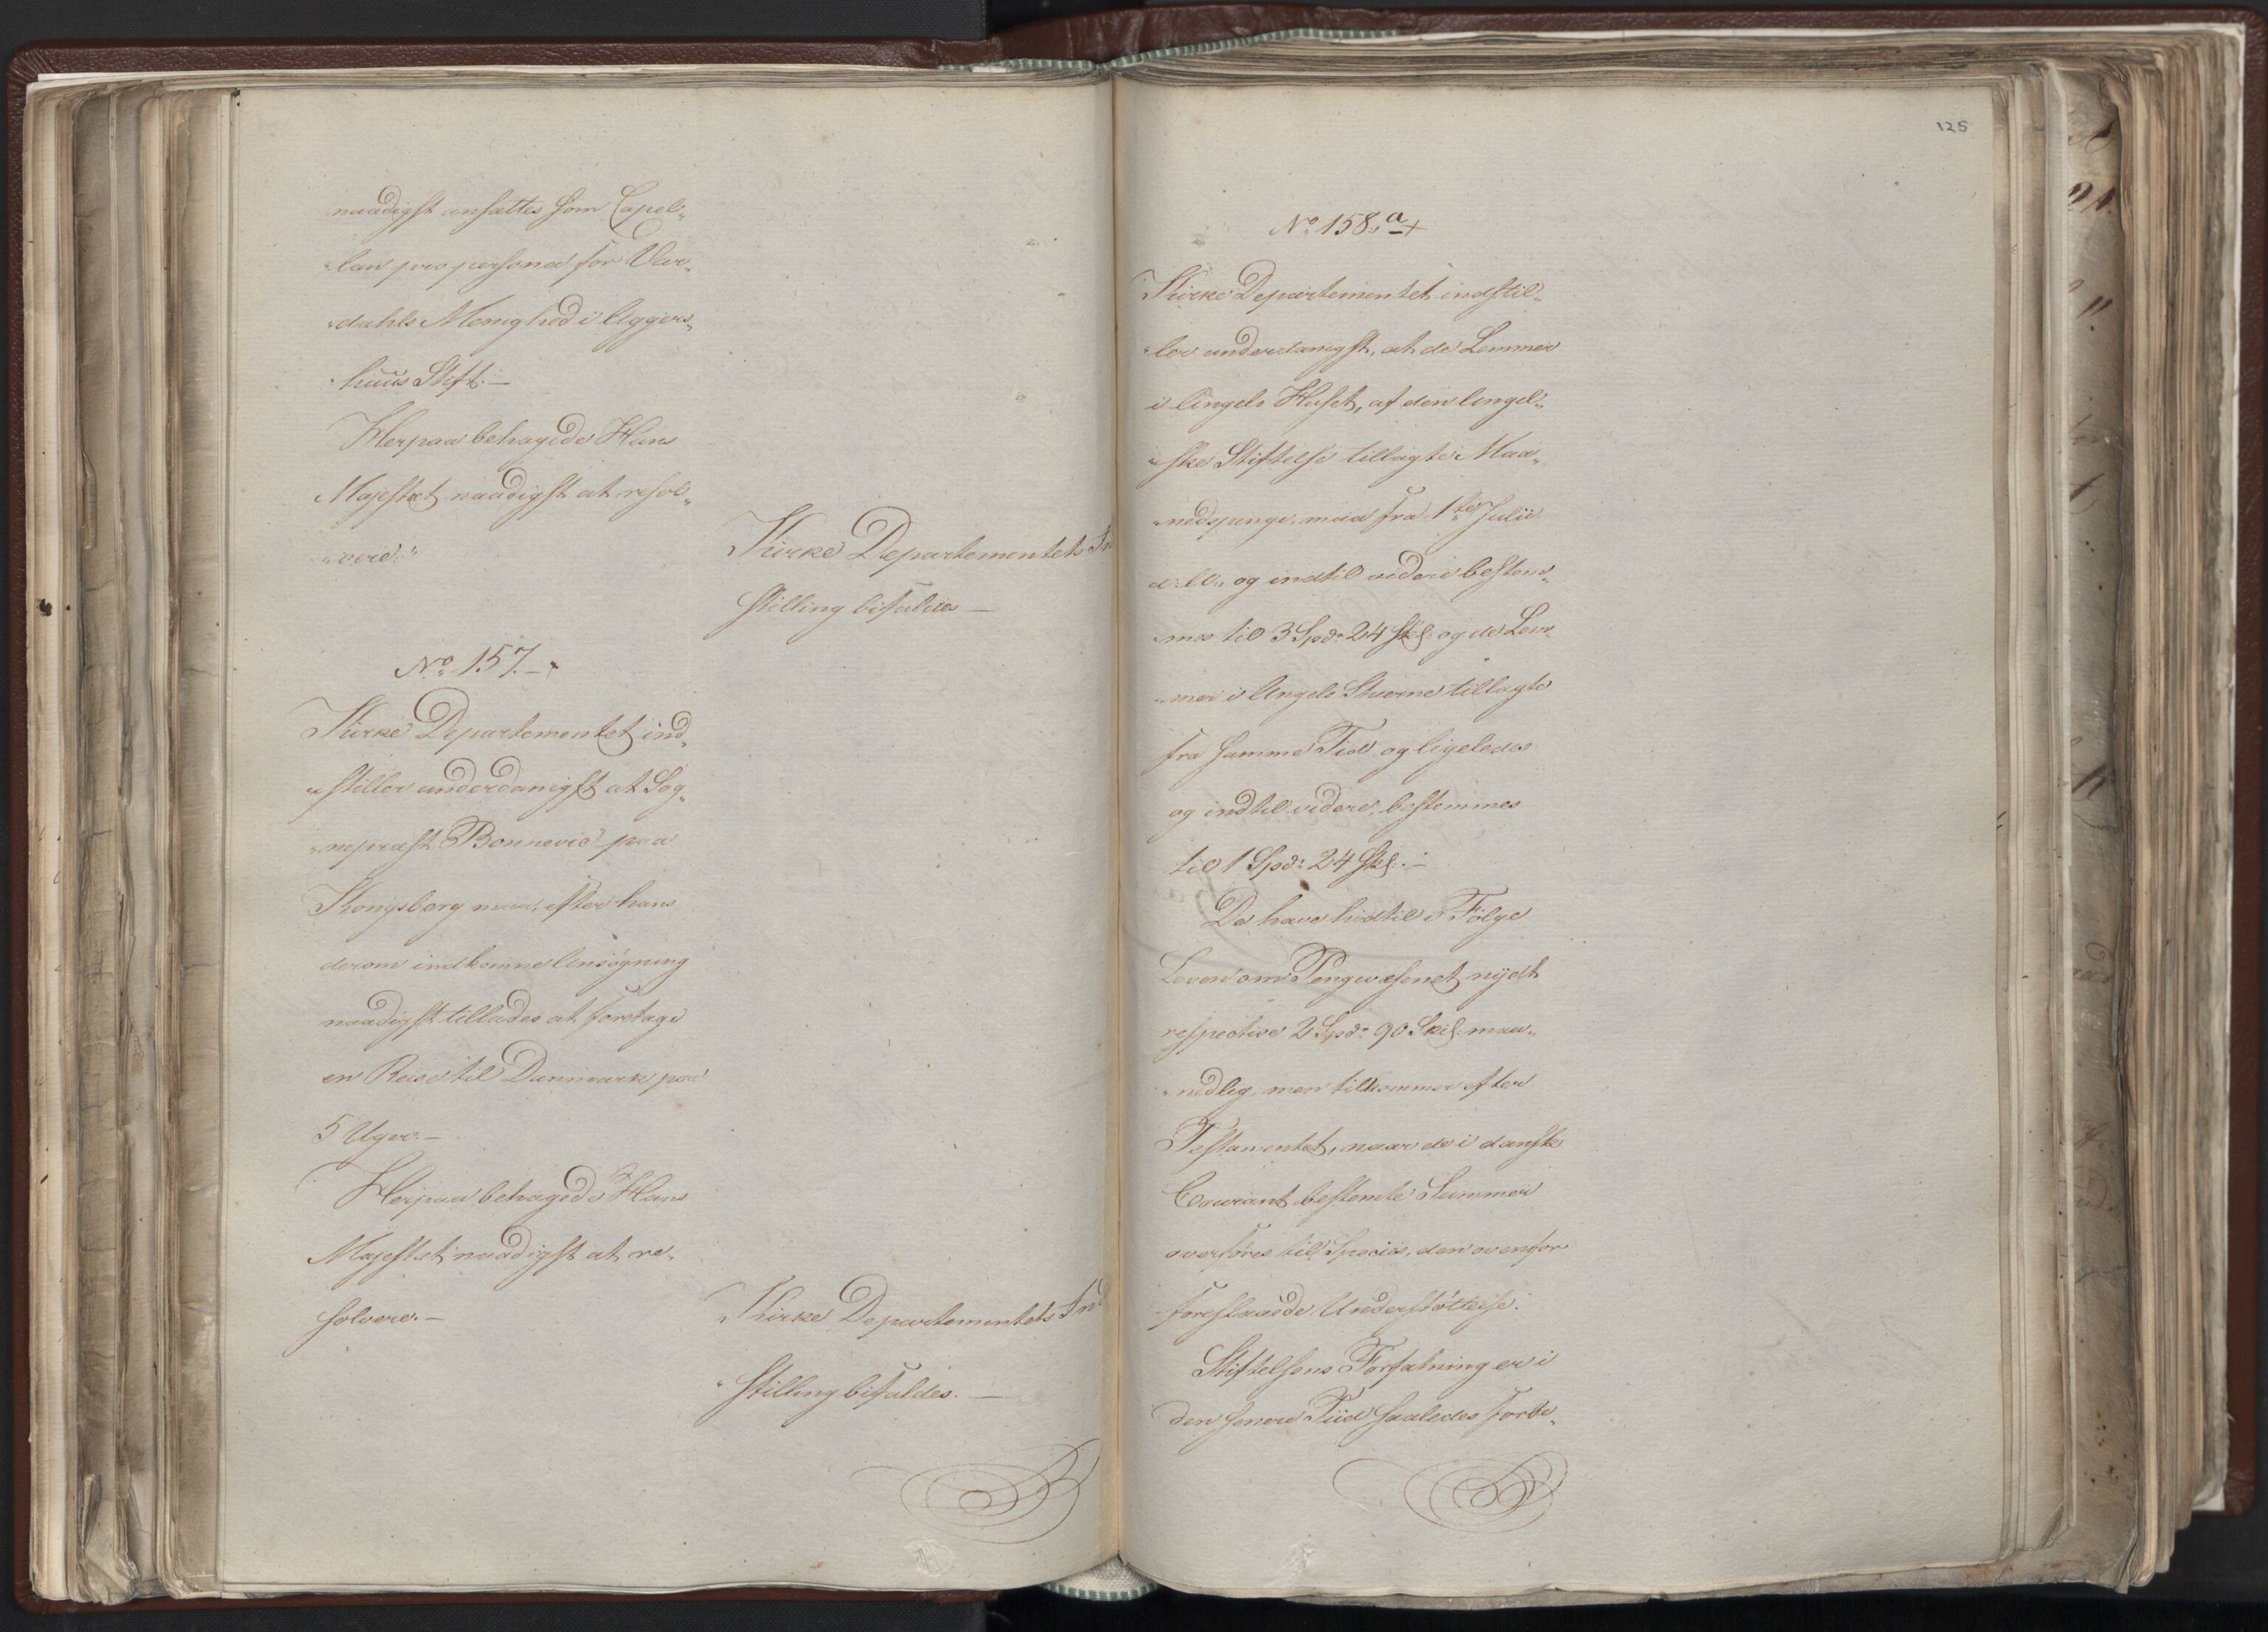 naadigst ansættes som Capel„
„lan pro persona for Var„
„dahls Menighed i Aggers„
„huus Stift.—
Herpaa behagede Hans
Majestæt naadigst at resol„
„vere:"
Kirke Departementets In
stilling bifaldes—
No 157.—
Kirke Departementet ind„
„stiller underdanigst at Sog„
„nepræst Bonnevie paa
Kongsberg maa, efter hans
derom indkomne Ansøgning
naadigst tillades at foretage
en Reise til Danmark paa
5 Uger.—
Herpaa behagede Hans
Majestæt naadigst at re„
solvere.—
Kirke Departementets Ind
„stilling bifaldes.—
125
No 158. a +
Kirke Departementet indstil„
„ler underdanigst, at de Lemmer
i Angels Huset, af den Angel„
„ske Stiftelse tillagte Maa„
„nedspenge, maa fra 1ste Julii
d: A:, og indtil videre bestem„
„mes til 3 Spd: 24 skl: og de Lem„
„mer i Angels Stuerne tillagte
fra samme Tid og ligeledes
og indtil videre, bestemmes
til 1 Spd: 24 skl:—
De have hidtil i Følge
Loven om Pengevæsenet nydt
respective 2 Spd: 90 Skil: maa„
„nedlig, men tilkommer efter
Testamentet, naar de i dansk
Courant bestemte Summer
overføres til Species, den ovenfor
foreslaaede Understøttelse.
Stiftelsens Forfatning er i
den senere Tiid saaledes forbe„